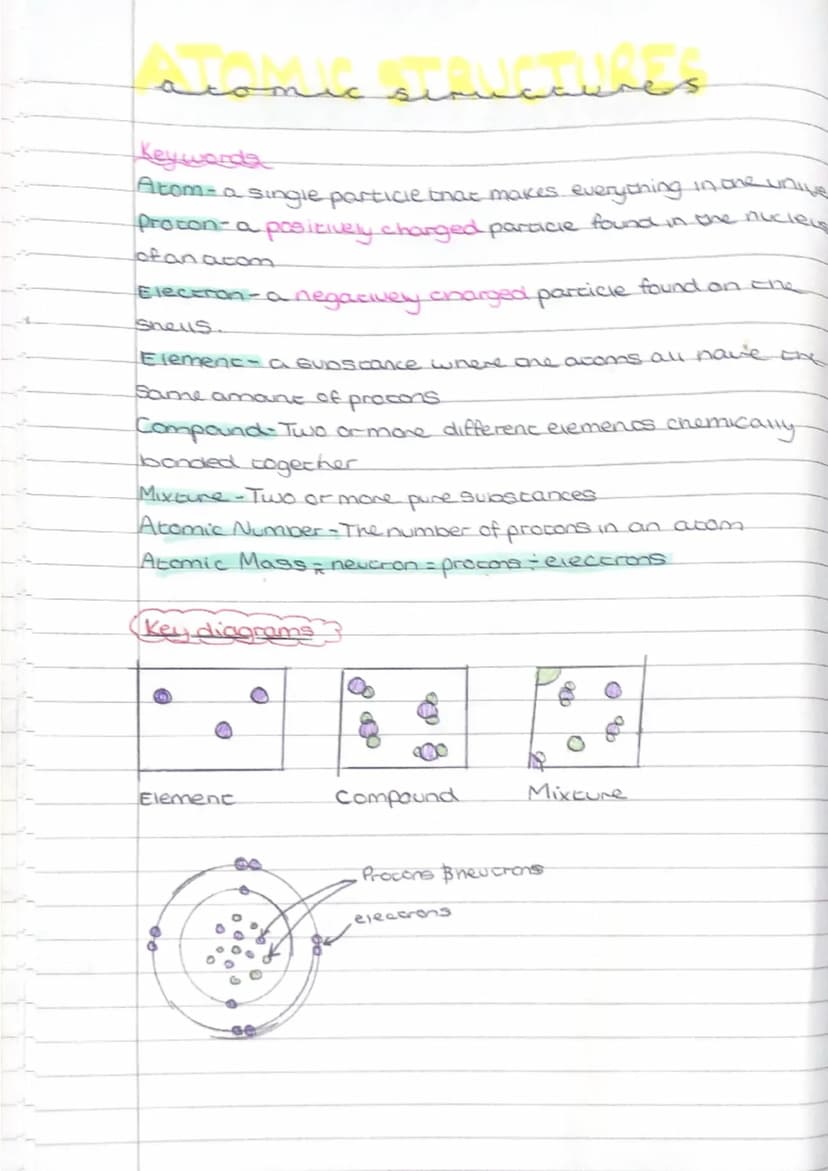 ATOMIC STRUCTURES
atomic structures
Keywords
Atom- a single particle that makes everything in the unive
Proton- a positively charged particle found in the nucleus
of an atom
Electron- a negatively charged particle found on the
shells.
Element- a substance where the atoms all have the
same amount of protons
Compound- Two or more different elements chemically
bonded together
Mixture - Two or more pure substances
Atomic Number - The number of protons in an atom
Atomic Mass = neutron = protons ÷ electrons
Key diagrams
Element Compound Mixture
Protons & neutrons
electrons